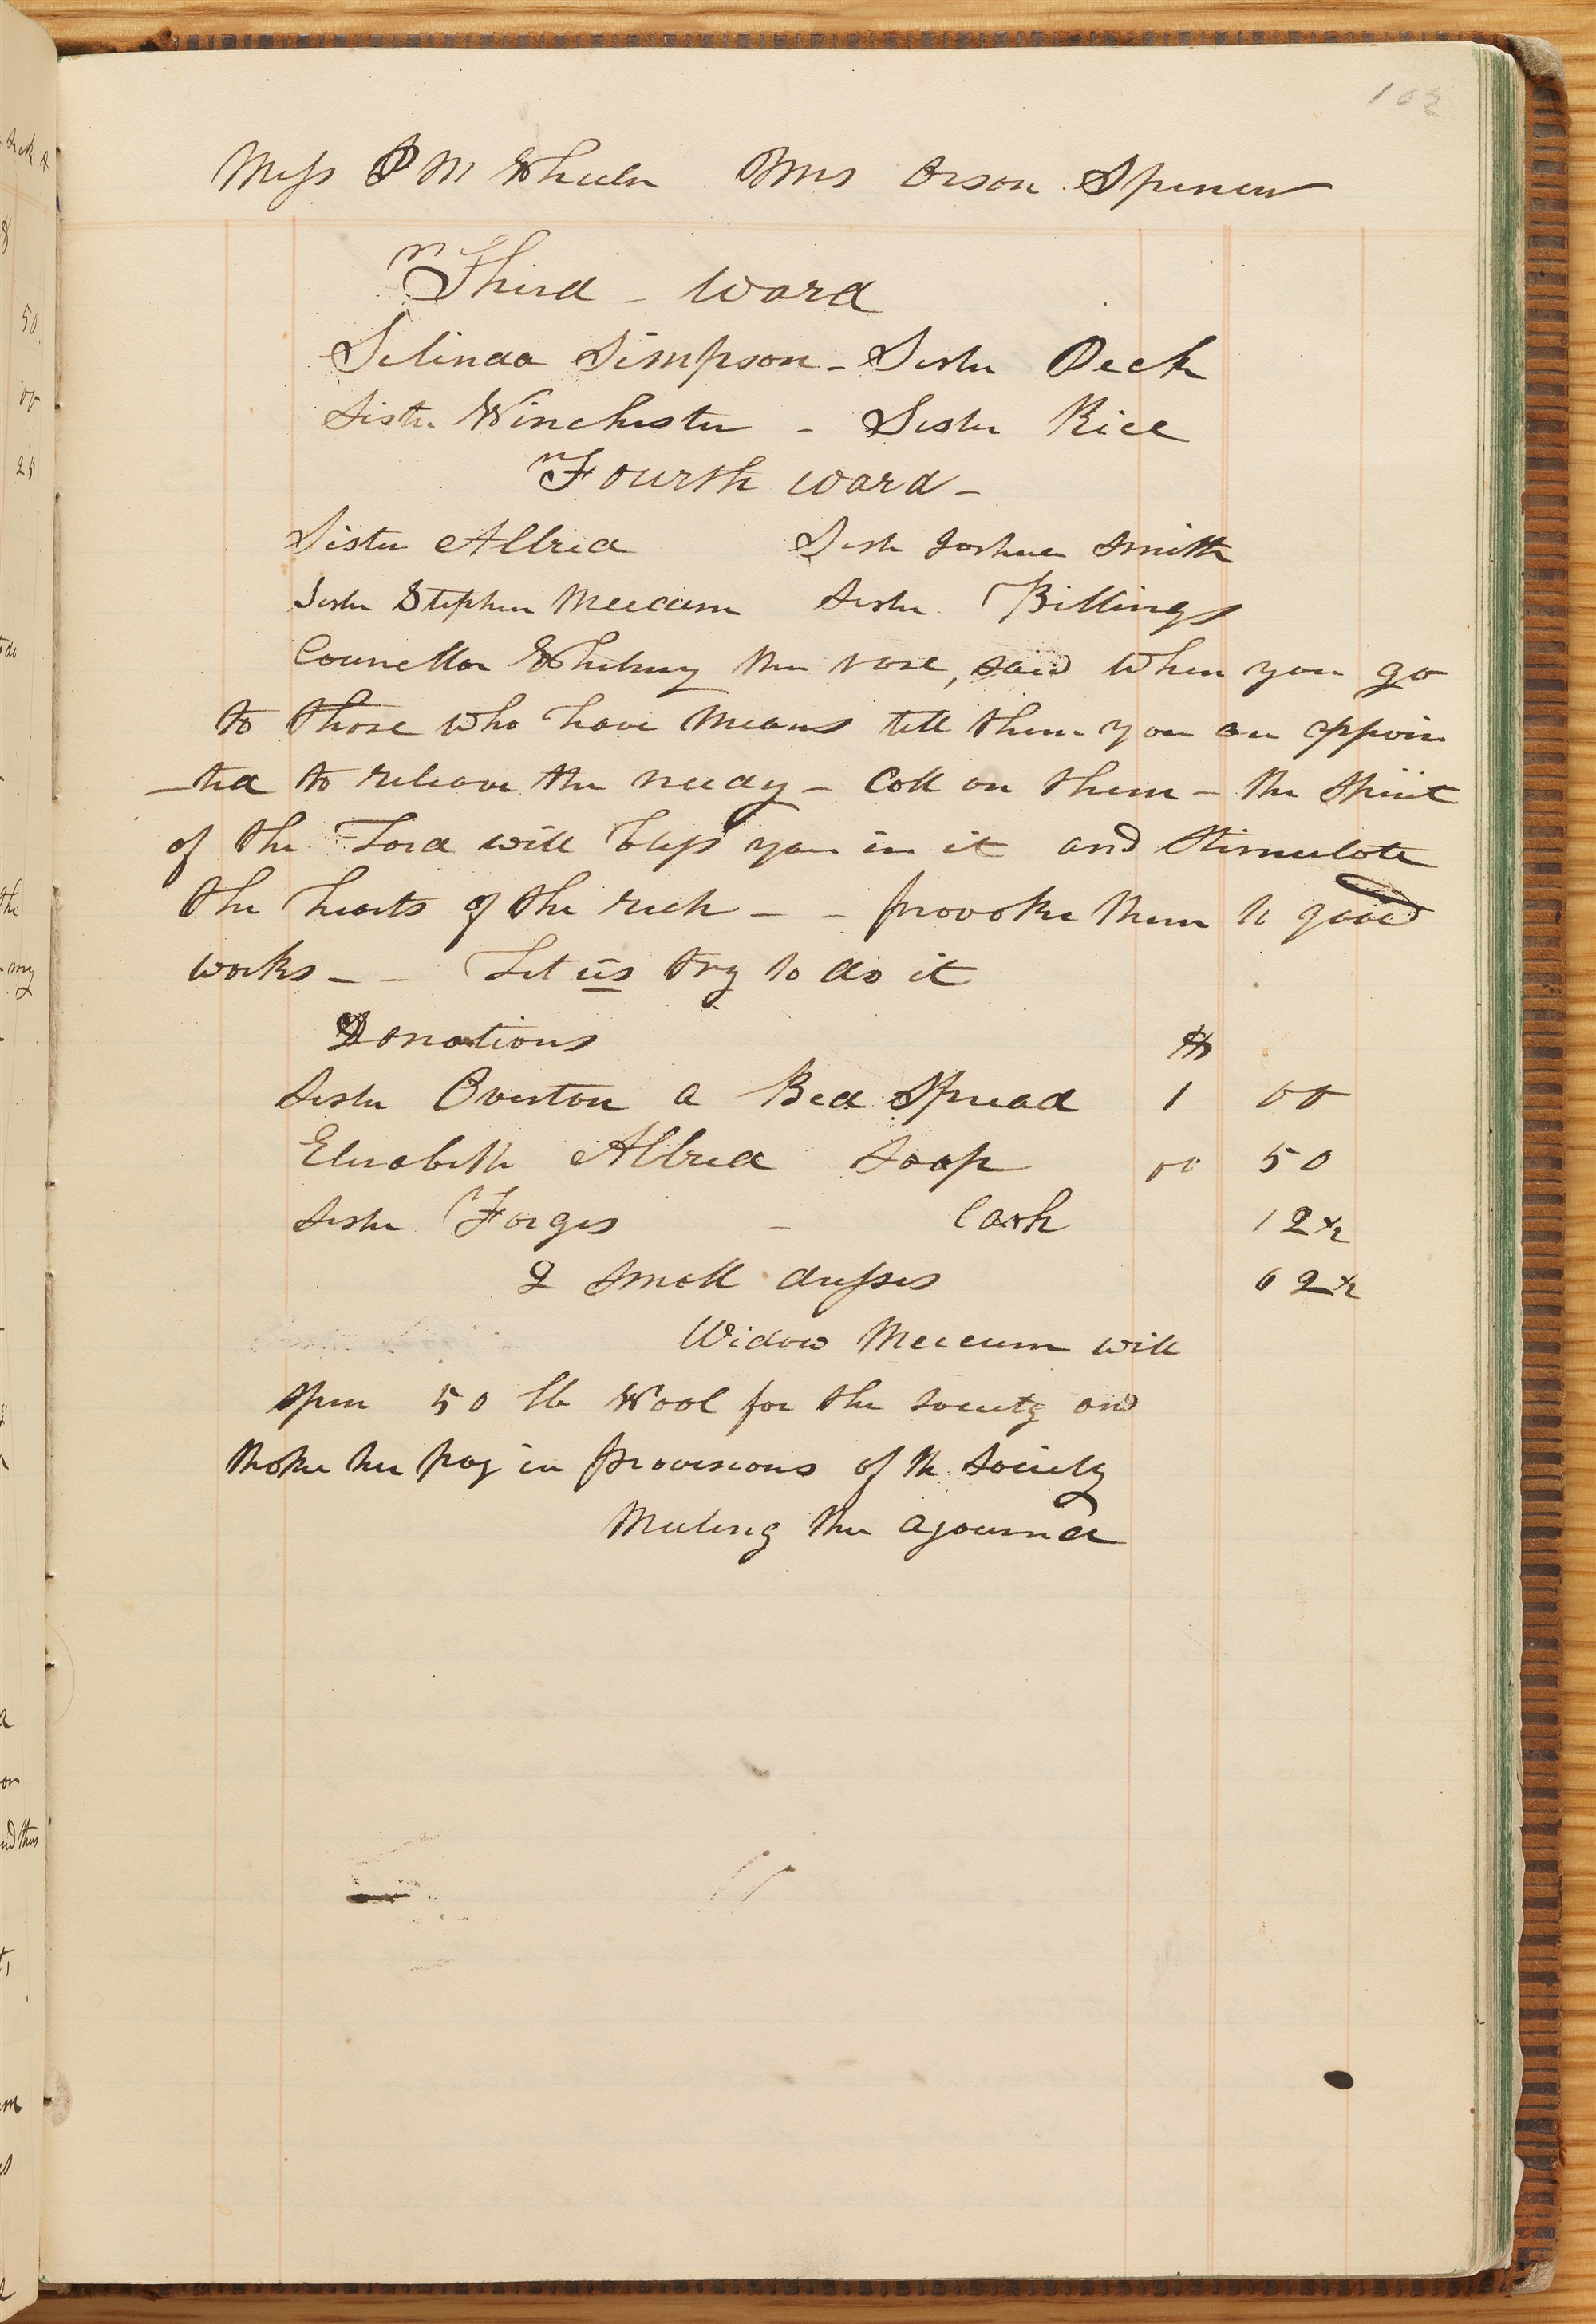 102
Miss P M Wheeler Mrs Orson Spencer
Third - Ward
Selinda Simpson - Sister Peck
Sister Winchester - Sister Rice
Fourth ward -
Sister Allred Sister Joshua Smith
Sister Stephen Meecam Sister Billings
Councellor Whitney then rose, said when you go
to those who have means tell them you are appoin
-ted to releave the needy - Call on them - the Spirit
of the Lord will bless you in it and Stimulate
the hearts of the rich - - provoke them to good
works - - Let us try to do it
Donations $
Sister Overton a Bed Spread 1 00
Elizabeth Allred Soap 00 50
Sister Forges - Cash 12½
2 small dresses 62½
Widow Meecum will
spin 50 lb Wool for the society and
take her pay in provisions of th society
Meeting then ajournd